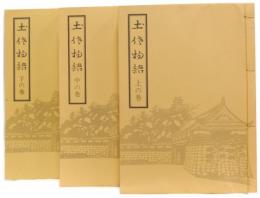 土佐物語
下の巻
土佐物語
中の巻
土佐物語
上の巻